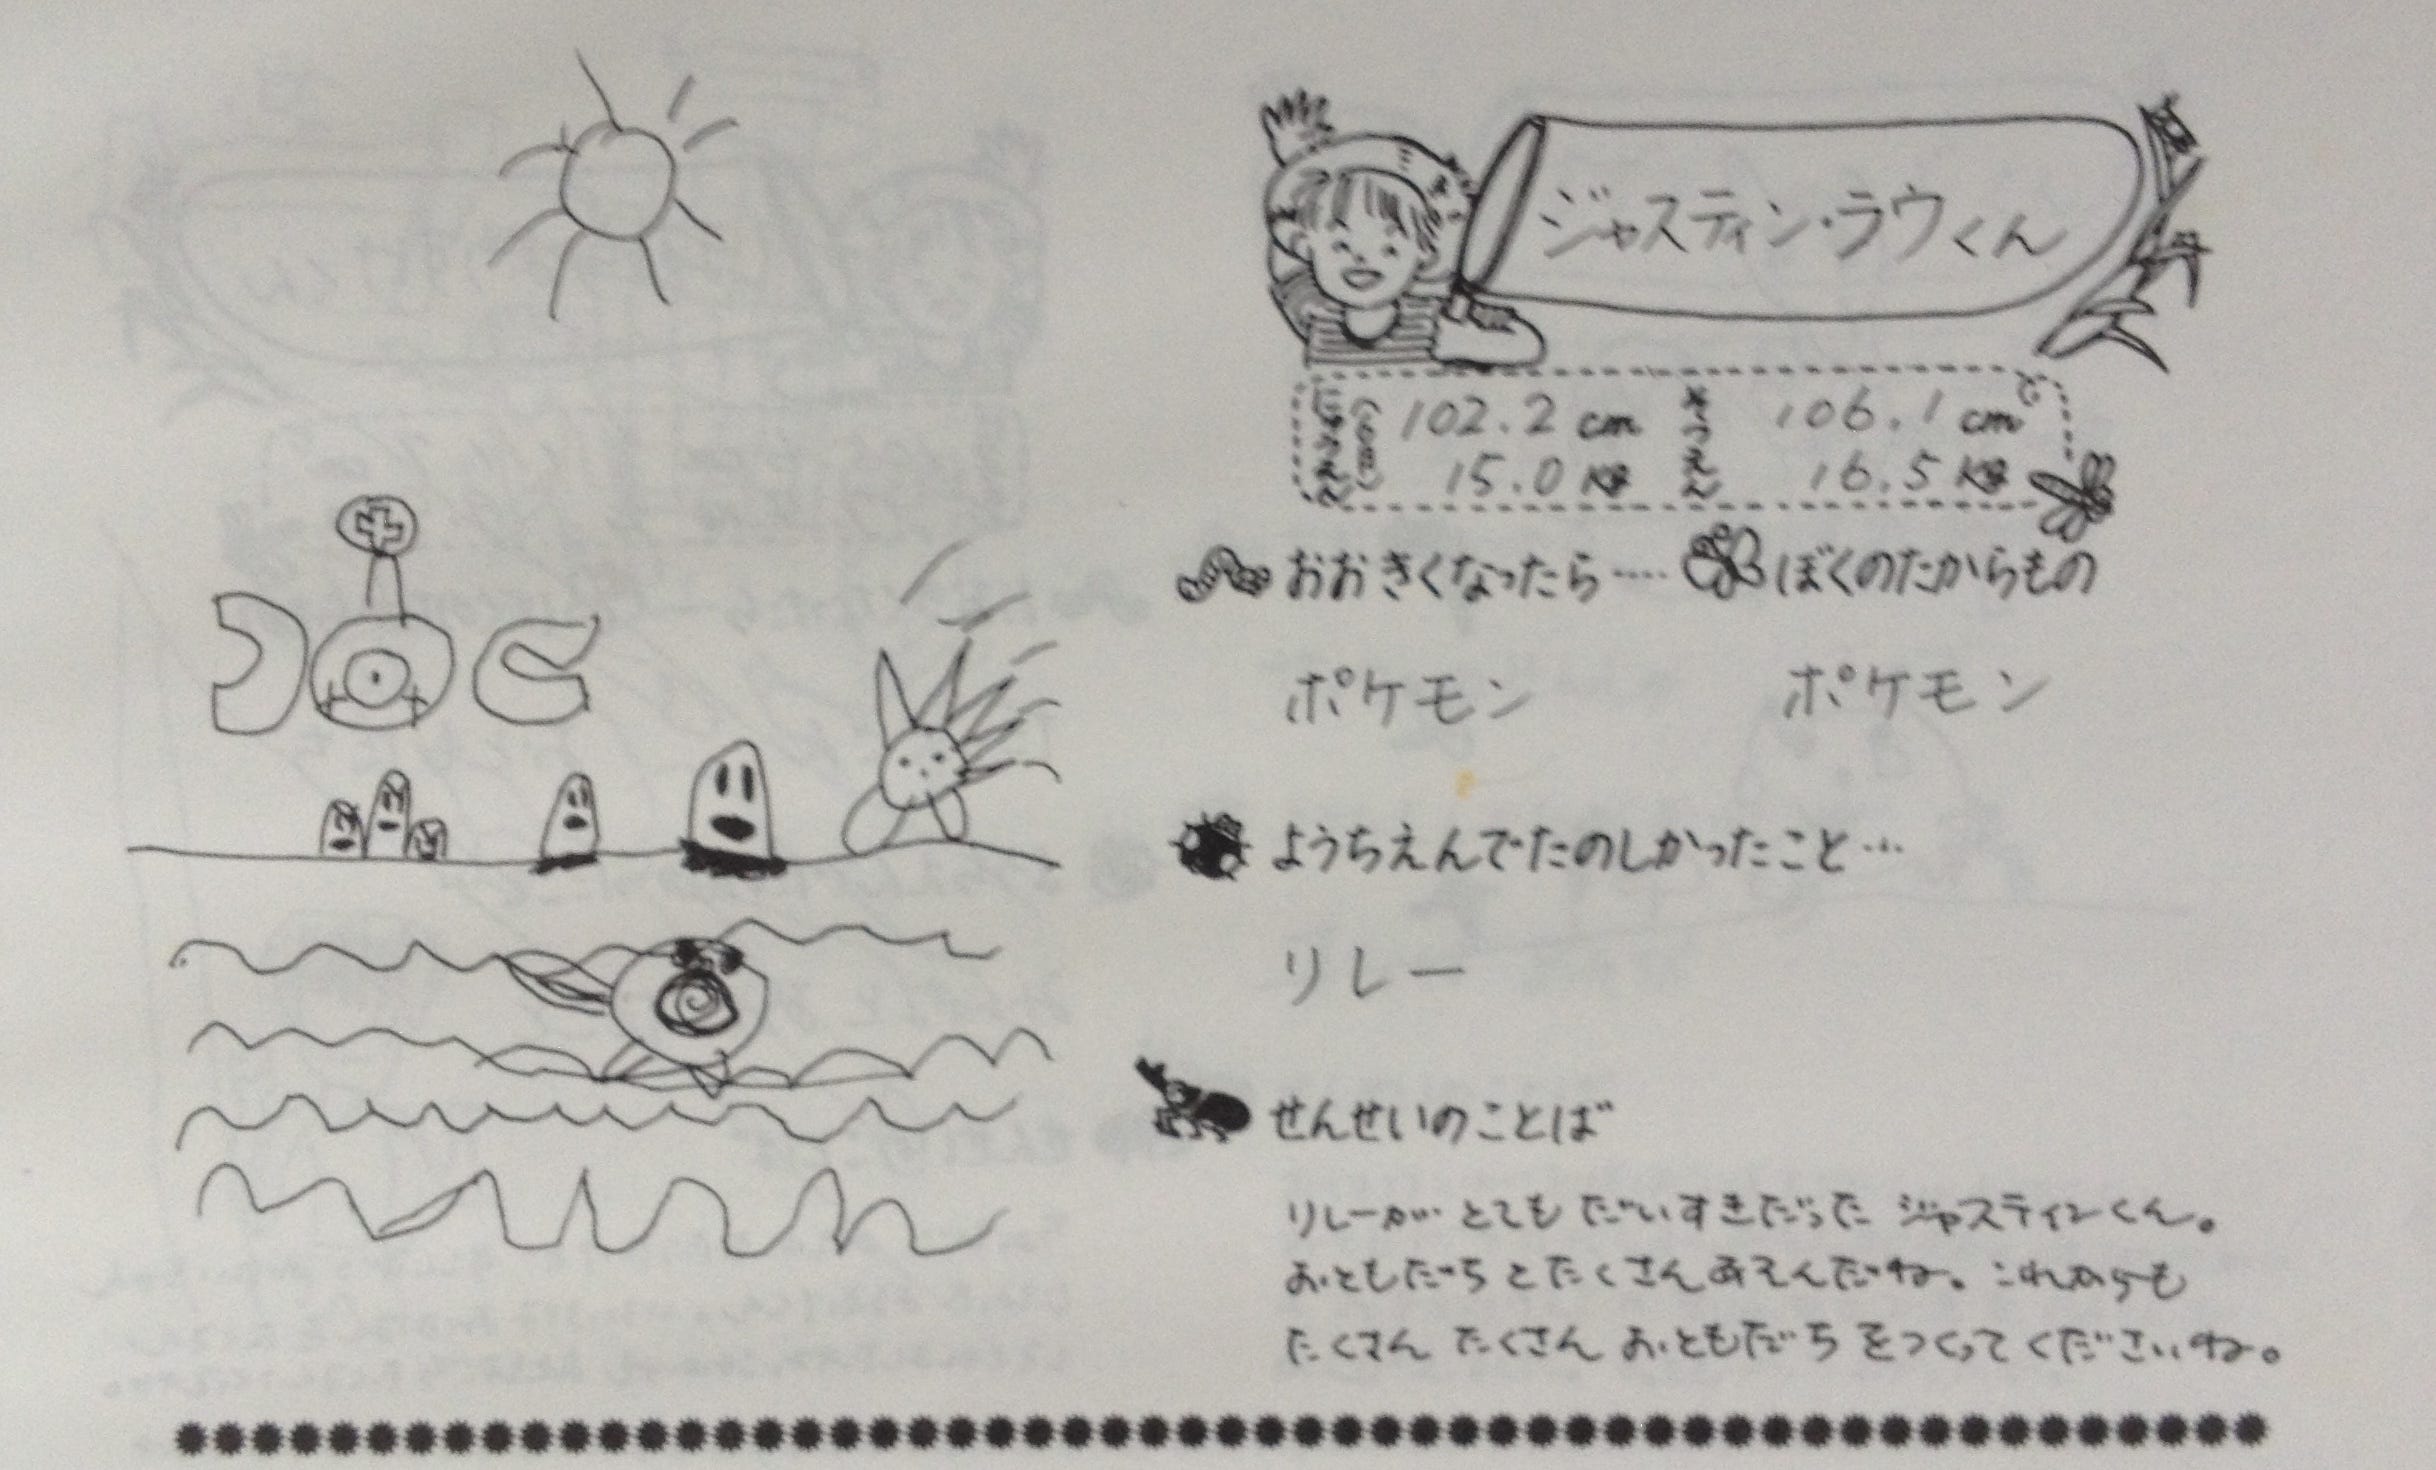 ジャスティン・ラウくん
にゅうえん 102.2 cm そつえん 106.1 cm
15.0 kg 16.5 kg
おおきくなったら‥‥ ぼくのたからもの
ポケモン ポケモン
ようちえんでたのしかったこと…
リレー
せんせいのことば
リレーが とても だいすきだった ジャスティンくん。
おともだち と たくさん あそんだね。これからも
たくさん たくさん おともだち をつくって くださいね。